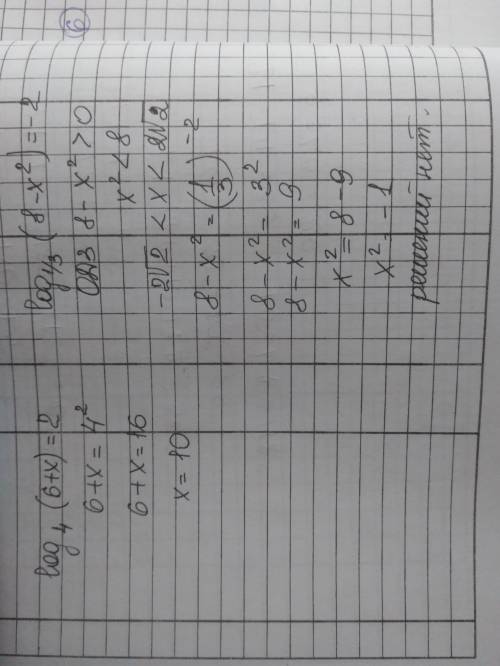 6
log₄(6+x)=2
6+x=4²
6+x=16
x=10
log₁/₃(8-x²)=-2
ОДЗ 8-x²>0
x²<8
-2√2<x<2√2
8-x²=(1/3)⁻²
8-x²=3²
8-x²=9
x²=8-9
x²=-1
решений нет.